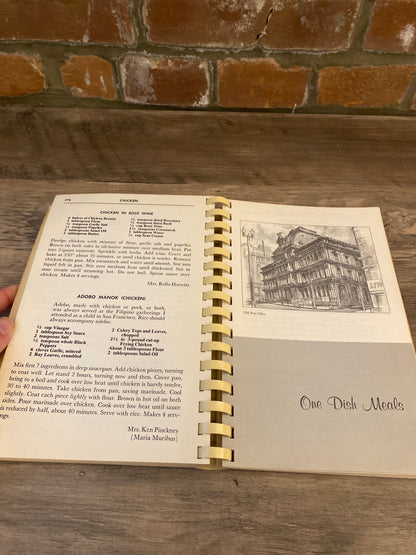 170
CHICKEN
CHICKEN IN ROSÉ WINE
2 halves of Chicken Breasts
2 tablespoons Flour
½ teaspoon Garlic Salt
½ teaspoon Paprika
2 tablespoons Salad Oil
2 tablespoons Butter
¼ teaspoon Rosemary
¼ teaspoon dried Basil
½ cup Rosé Wine
1½ teaspoons Cornstarch
2 tablespoons Water
½ cup Sour Cream
Dredge chicken with mixture of flour, garlic salt and paprika.
Brown on both sides in oil-butter mixture over medium heat. Put
into 2-quart casserole. Sprinkle with herbs. Add wine. Cover and
bake at 350° about 35 minutes, or until chicken is tender. Remove
chicken from pan. Mix cornstarch and water until smooth. Stir into
liquid left in pan. Stir over medium heat until thickened. Stir in
sour cream until steaming hot. Do not boil. Spoon sauce over
chicken. Makes 4 servings.
Mrs. Rollo Horwitz
ADOBO MANOK (CHICKEN)
Adobo, made with chicken or pork, or both,
was always served at the Filipino gatherings I
attended as a child in San Francisco. Rice should
always accompany adobo.
½ cup Vinegar
2 tablespoons Soy Sauce
2 teaspoons Salt
½ teaspoon whole Black
Peppers
Cloves Garlic, minced
2 Bay Leaves, crumbled
2 Celery Tops and Leaves,
chopped
2½ to 3-pound cut-up
Frying Chicken
About 3 tablespoons Flour
2 tablespoons Salad Oil
Mix first 7 ingredients in deep saucepan. Add chicken pieces, turning
to coat well. Let stand 2 hours, turning now and then. Cover pan,
bring to a boil and cook over low heat until chicken is barely tender,
30 to 40 minutes. Take chicken from pan, saving marinade. Cool
slightly. Coat each piece lightly with flour. Brown in hot oil on both
sides. Pour marinade over chicken. Cook over low heat until sauce
is reduced by half, about 40 minutes. Serve with rice. Makes 4 serv-
ings.
Mrs. Ken Pinckney
(Maria Muribus)
Old Post Office
One Dish Meals